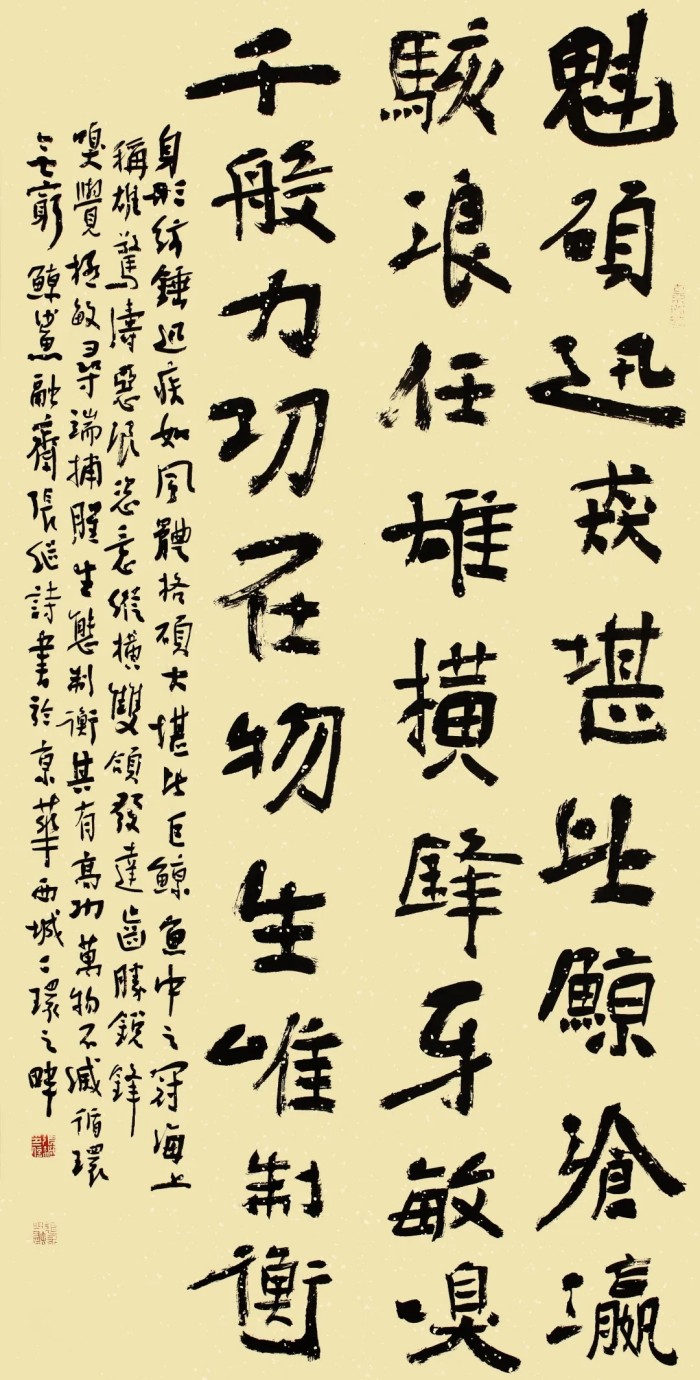 魁碩迅猋堪比鯨滄瀛
駭浪任雄橫鋒牙敏嗅
千般力功在物生唯制衡
身形紡錘迅疾如風體格碩大堪比巨鯨魚中之冠海上
稱雄驚濤惡浪恣意縱橫雙頜發達齒勝銳鋒
嗅覺極敏尋端捕腥生態制衡其有高功萬物不滅循環
無窮 鯨鯊 融齋張繼詩書於京華西城二環之畔